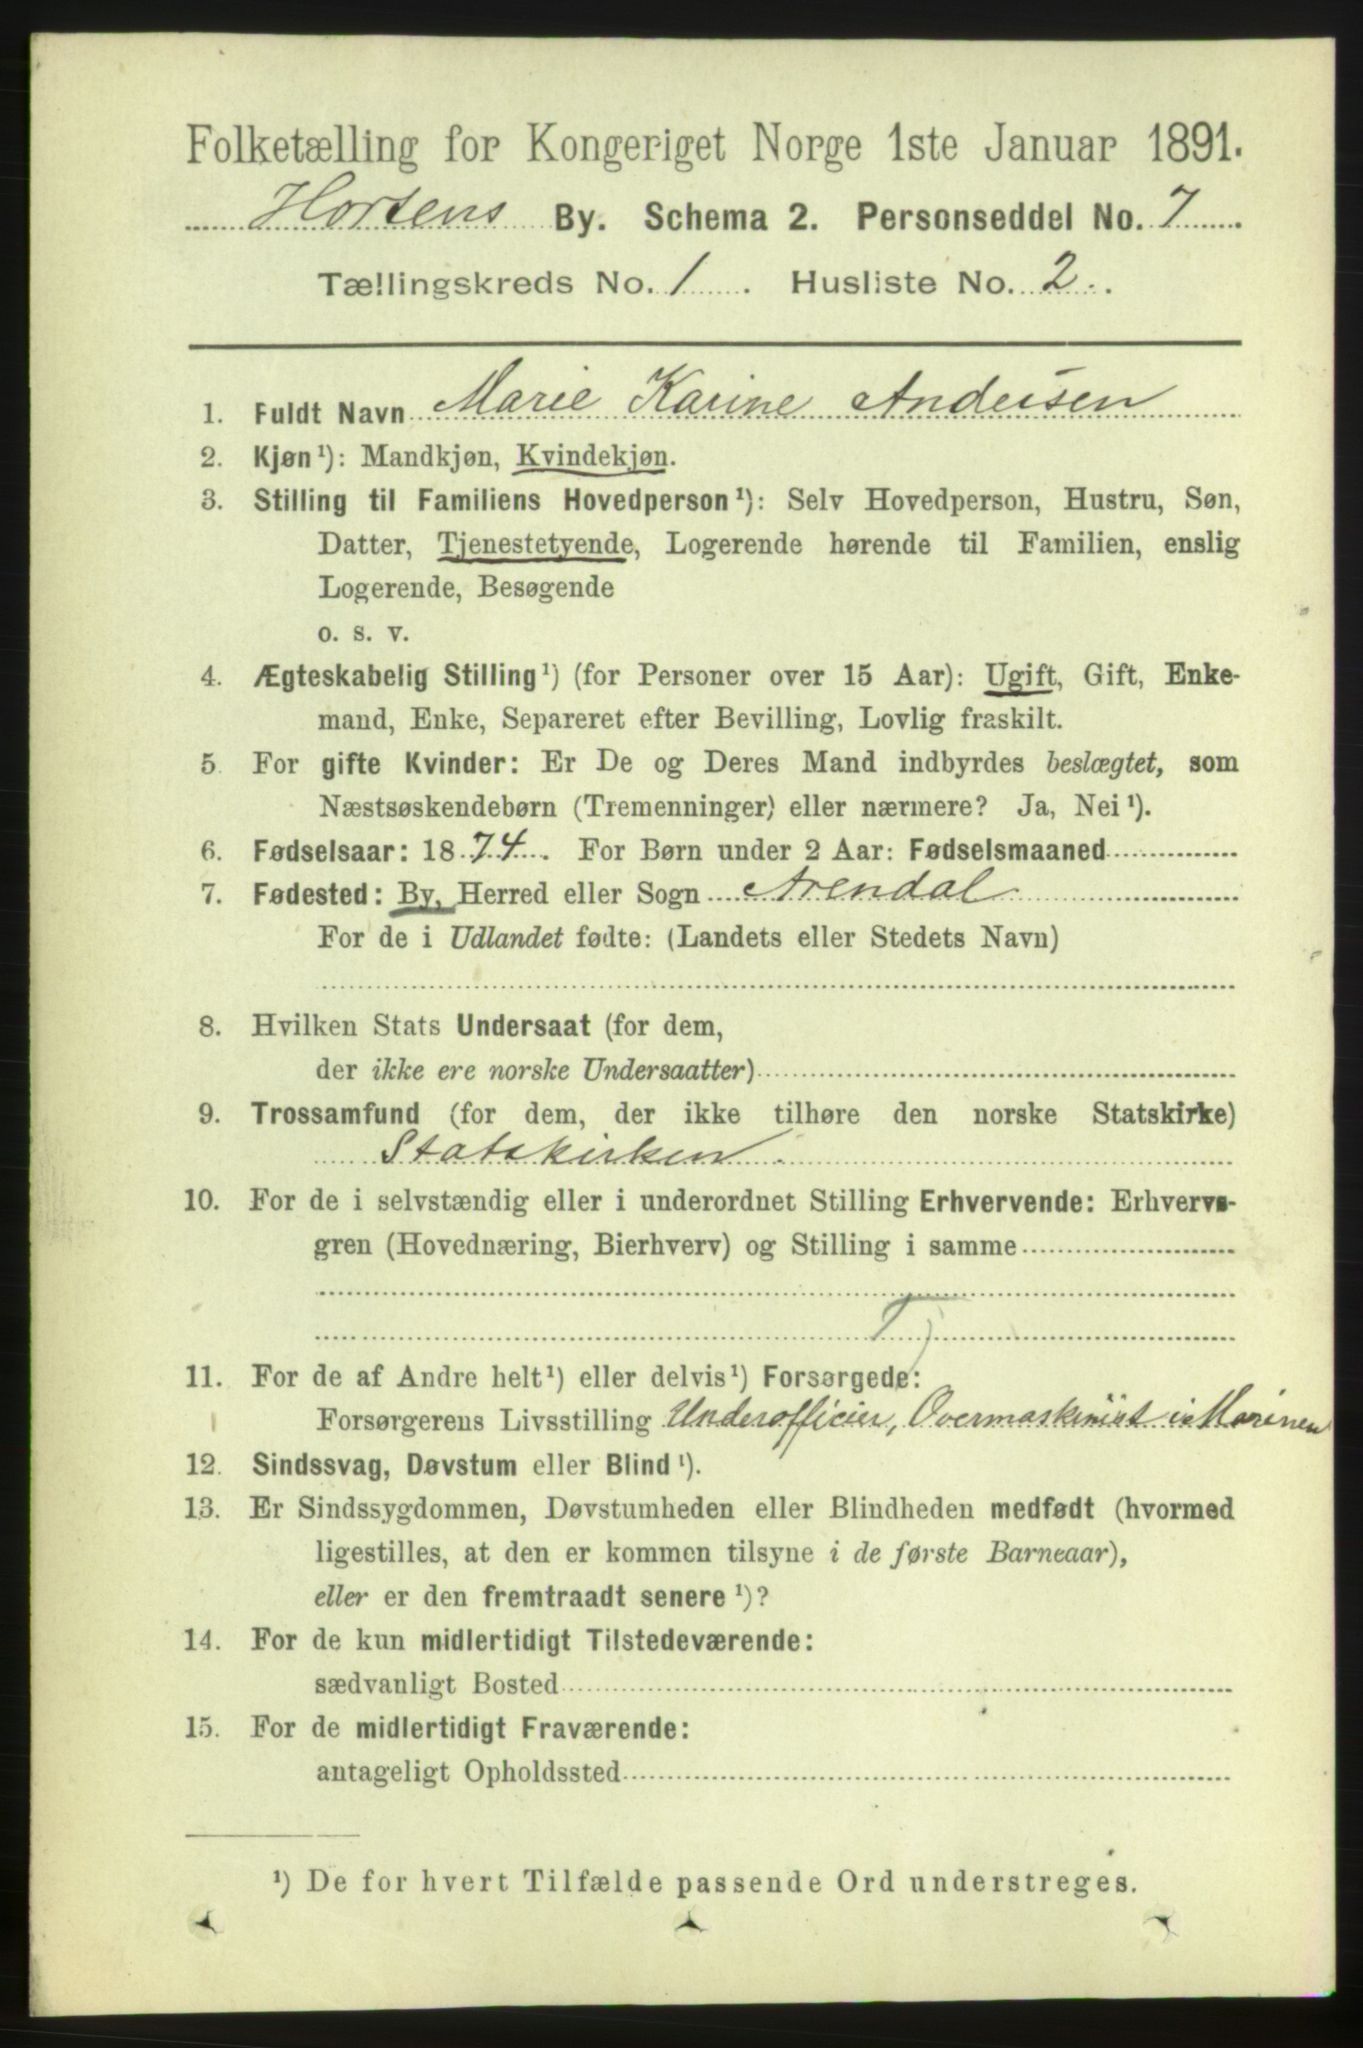 Folketælling for Kongeriget Norge 1ste Januar 1891.
Hortens By. Schema 2. Personseddel No. 7
Tællingskreds No. 1. Husliste No. 2.
1. Fuldt Navn Marie Karine Andersen
2. Kjøn ¹): Mandkjøn, Kvindekjøn.
3. Stilling til Familiens Hovedperson ¹): Selv Hovedperson, Hustru, Søn,
Datter, Tjenestetyende, Logerende hørende til Familien, enslig
Logerende, Besøgende
o. s. v.
4. Ægteskabelig Stilling ¹) (for Personer over 15 Aar): Ugift, Gift, Enke-
mand, Enke, Separeret efter Bevilling, Lovlig fraskilt.
5. For gifte Kvinder: Er De og Deres Mand indbyrdes beslægtet, som
Næstsøskendebørn (Tremenninger) eller nærmere? Ja, Nei ¹).
6. Fødselsaar: 1874. For Børn under 2 Aar: Fødselsmaaned
7. Fødested: By, Herred eller Sogn Arendal
For de i Udlandet fødte: (Landets eller Stedets Navn)
8. Hvilken Stats Undersaat (for dem,
der ikke ere norske Undersaatter)
9. Trossamfund (for dem, der ikke tilhøre den norske Statskirke)
Statskirken.
10. For de i selvstændig eller i underordnet Stilling Erhvervende: Erhvervs-
gren (Hovednæring, Bierhverv) og Stilling i samme
Tj
11. For de af Andre helt ¹) eller delvis ¹) Forsørgede:
Forsørgerens Livsstilling Underofficier, Overmaskinist i Marinen
12. Sindssvag, Døvstum eller Blind ¹).
13. Er Sindssygdommen, Døvstumheden eller Blindheden medfødt (hvormed
ligestilles, at den er kommen tilsyne i de første Barneaar),
eller er den fremtraadt senere ¹)?
14. For de kun midlertidigt Tilstedeværende:
sædvanligt Bosted
15. For de midlertidigt Fraværende:
antageligt Opholdssted
¹) De for hvert Tilfælde passende Ord understreges.